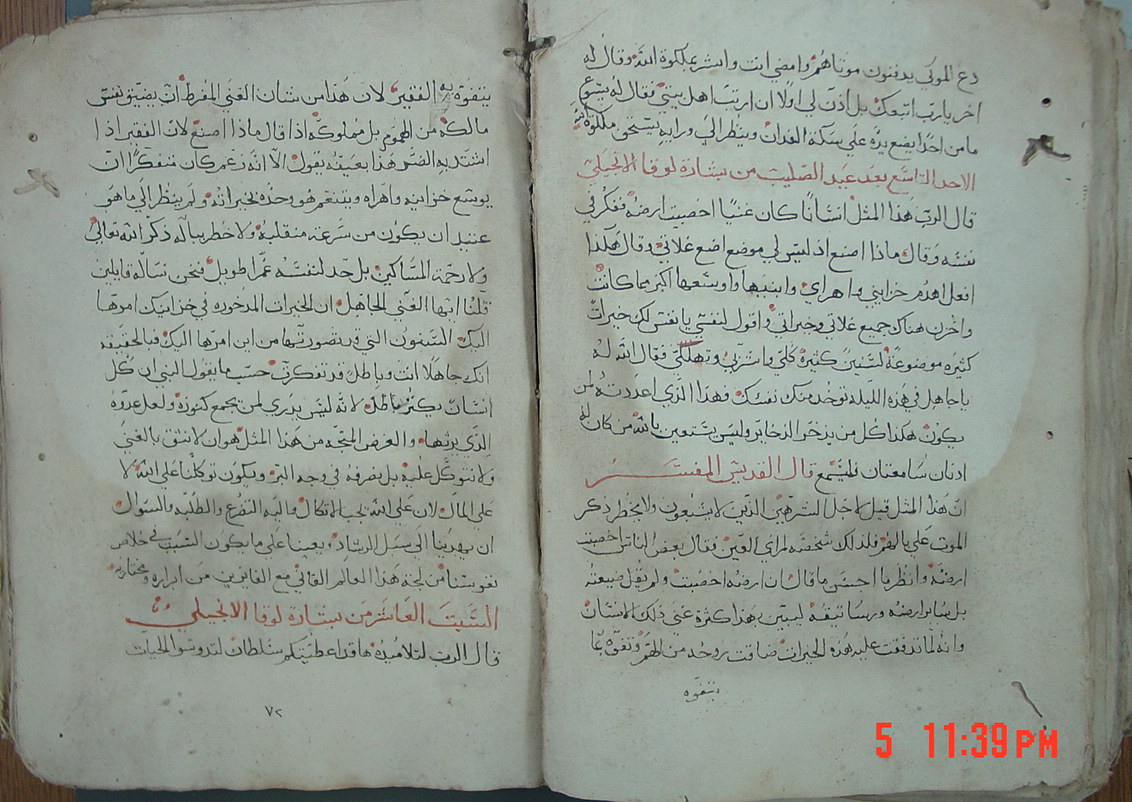 دع الموتى يدفنون موتاهم وامضي انت وابشر بملكوة الله وقال له
اخر يارب اتبعك بل اذن لي اولا ان ارتب اهل بيتي فقال له يسوع
ما من احد يضع يده على سكة الفدان وينظر الى ورايه يستحق ملكوة الله
الاحد التاسع بعد عيد الصليب من بشارة لوقا الانجيلي
قال الرب هذا المثل انسانا كان غنيا اخصبت ارضه ففكر في
نفسه وقال ماذا اصنع اذ ليس لي موضع اضع غلاتي وقال هكذا
افعل اهدم خزايني واهراي وابنيها واوسعها اكبر مما كانت
واخزن هناك جميع غلاتي وخيراتي واقول لنفسي يا نفس لك خيرات
كثيره موضوعة لسنين كثيره كلي واشربي وتهللي فقال الله له
يا جاهل في هذه الليله توخد منك نفسك فهذا الذي اعددته لمن
يكون هكذا كل من يدخر الذخاير وليس يستعين بالله من كان له
اذنان سامعتان فليسمع قال القديس المفسر
ان هذا المثل قيل لاجل الشرهين الذين لا يشبعون ولا يخطر ذكر
الموت على بالهم فلذلك شخصه لمراي العين فقال بعض الناس اخصبت
ارضه وانظر ما احسن ما قال ان ارضه اخصبت ولم يقل ضيعته
بل ساير ارضه ليبين بهذا كثرة غنى ذلك الانسان
وانه لما تدفقت عليه هذه الخيرات ضاقت روحه من الهم وتفوه بما
يتفوه
يتفوه به الفقير لان هذا من شان الغني المفرط ان يضيق نفس
مالكه من الهموم بل مملوكه اذا قال ماذا اصنع لان الفقير اذا
اشتد به الضر هذا بعينه يقول الا انه زعم كان متفكرا ان
يوسع خزاينه واهراه ويتنعم هو وحده بخيراته ولم ينظر الى ما هو
عتيد ان يكون من سرعة منقلبه ولا خطر بباله ذكر الله تعالى
ولا رحمة المساكين بل حد لنفسه عمرا طويل فنحن نساله قايلين
قلنا ايها الغني الجاهل ان الخيرات المدخوره في خزاينك امرها
اليك السنون التي قد تصورتها من اين امرها اليك فبالحقيقه
انك جاهلا انت وباطل قد تفكرت حسب ما يقول النبي ان كل
انسان يكنز باطل لانه ليس يدري لمن يجمع كنوزه ولعل عدوه
الذي يرثها والغرض المتجه من هذا المثل هو ان لا نثق بالغنى
ولا نتوكل عليه بل نصرفه في وجه البر ويكون توكلنا على الله لا
على المال لان على الله يجب الاتكال واليه التضرع والطلبه والسوال
ان يهدينا الى سبيل الرشاد ويعينا على ما يكون السبب في خلاص
نفوسنا من لجة هذا العالم الفاني مع الفايزين من ابراره ومختاريه
السبت العاشر من بشارة لوقا الانجيلي
قال الرب لتلاميذه ها قد اعطيتكم سلطان لتدوسوا الحيات
٧٢
5 11:39 PM